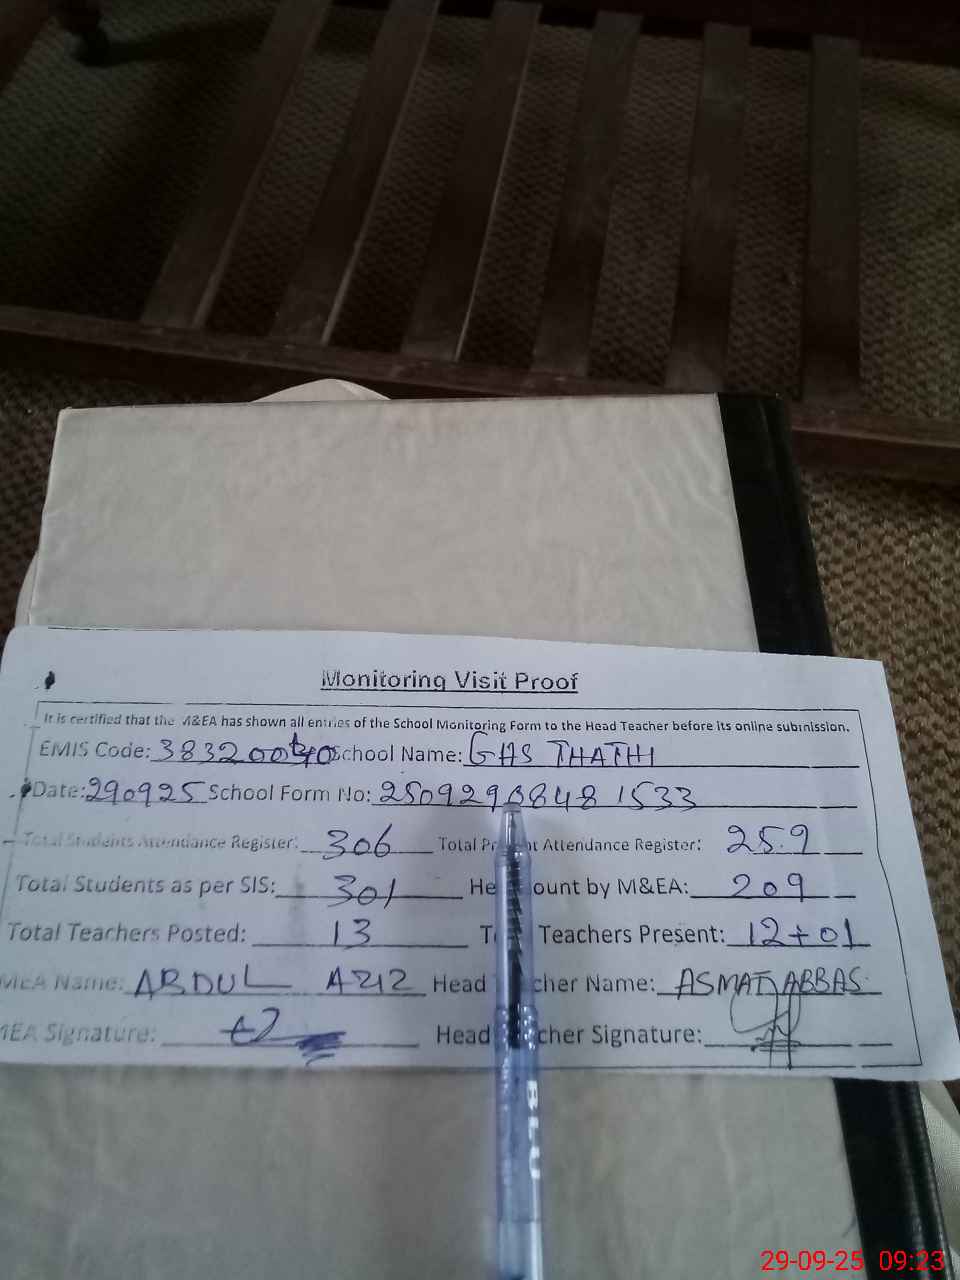 Monitoring Visit Proof
It is certified that the M&EA has shown all entries of the School Monitoring Form to the Head Teacher before its online submission.
EMIS Code: 38320040 School Name: GHS THATHI
Date: 290925 School Form No: 25092908481533
Total Students Attendance Register: 306 Total Pr nt Attendance Register: 259
Total Students as per SIS: 301 He ount by M&EA: 209
Total Teachers Posted: 13 T Teachers Present: 12+01
MEA Name: ABDUL AZIZ Head cher Name: ASMAT ABBAS
MEA Signature: Head cher Signature:
BLU
29-09-25 09:23